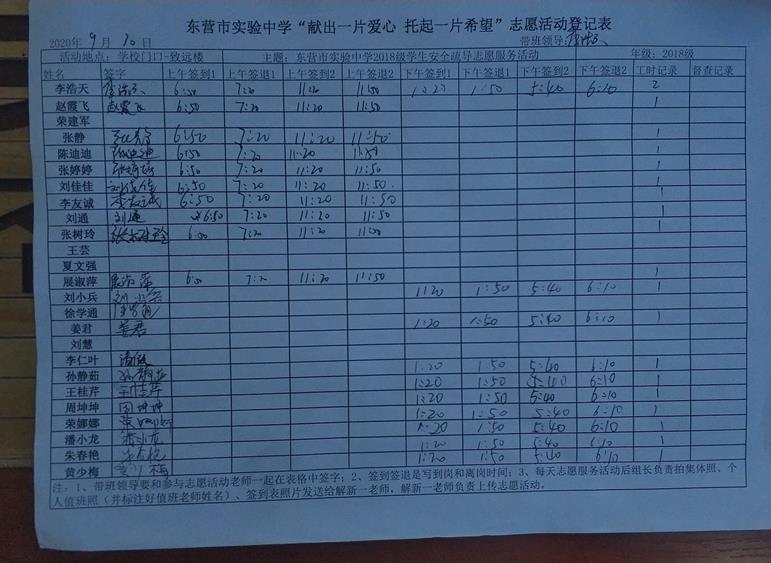 东营市实验中学“献出一片爱心 托起一片希望”志愿活动登记表
2020年 9月 10日 带班领导:
活动地点：学校门口-致远楼 主题：东营市实验中学2018级学生安全疏导志愿服务活动 年级：2018级
姓名 签字 上午签到1 上午签退1 上午签到2 上午签退2 下午签到1 下午签退1 下午签到2 下午签退2 工时记录 督查记录
李浩天 李浩天 6:50 7:20 11:20 11:50 1:20 1:50 5:40 6:10 2
赵霞飞 赵霞飞 6:50 7:20 11:20 11:50 1
荣建军
张静 6:50 7:20 11:20 11:50 1
陈迪迪 6:50 7:20 11:20 11:50 1
张婷婷 张婷婷 6:50 7:20 11:20 11:50 1
刘佳佳 刘佳佳 6:50 7:20 11:20 11:50 1
李友诚 李友诚 6:50 7:20 11:20 11:50 1
刘通 刘通 6:50 7:20 11:20 11:50 1
张树玲 张树玲 6:50 7:20 11:20 11:50 1
王芸
夏文强
展淑萍 展淑萍 6:50 7:20 11:20 11:50 1
刘小兵 刘小兵 1:20 1:50 5:40 6:10 1
徐学通
姜君 姜君 1:20 1:50 5:40 6:10 1
刘慧
李仁叶 1:20 1:50 5:40 6:10 1
孙静茹 孙静茹 1:20 1:50 5:40 6:10 1
王桂芹 王桂芹 1:20 1:50 5:40 6:10 1
周坤坤 周坤坤 1:20 1:50 5:40 6:10 1
荣娜娜 荣娜娜 1:20 1:50 5:40 6:10 1
潘小龙 潘小龙 1:20 1:50 5:40 6:10 1
朱春艳 朱春艳 1:20 1:50 5:40 6:10 1
黄少梅
注：1、带班领导要和参与志愿活动老师一起在表格中签字；2、签到签退是写到岗和离岗时间；3、每天志愿服务活动后组长负责拍集体照、个
人值班照（并标注好值班老师姓名）、签到表照片发送给解新一老师，解新一老师负责上传志愿活动。